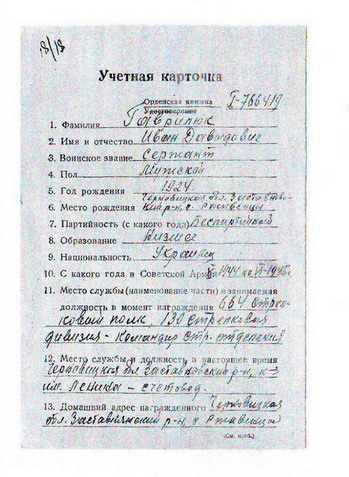 18/13
Учетная карточка
Орденская книжка
Удостоверение
I-766419
1. Фамилия Гаврилюк
2. Имя и отчество Иван Давидович
3. Воинское звание Сержант
4. Пол Мужской
5. Год рождения 1924
Черновицкая обл. Заставнов-
6. Место рождения кий р-н, с. Ржавенцы
7. Партийность (с какого года) Беспартийный
8. Образование Низшее
9. Национальность Украинец
10. С какого года в Советской Армии 1944 по 1948г.
11. Место службы (наименование части) и занимаемая
должность в момент награждения 664 стрел-
ковый полк, 130 стрелковая
дивизия - командир стр. отделения
12. Место службы и должность в настоящее время
Черновицкая обл заставновский р-н, к-з
им. Ленина - счетовод.
13. Домашний адрес награжденного Черновицкая
обл. Заставновский р-н, с. Ржавенцы
(См. н/об.)